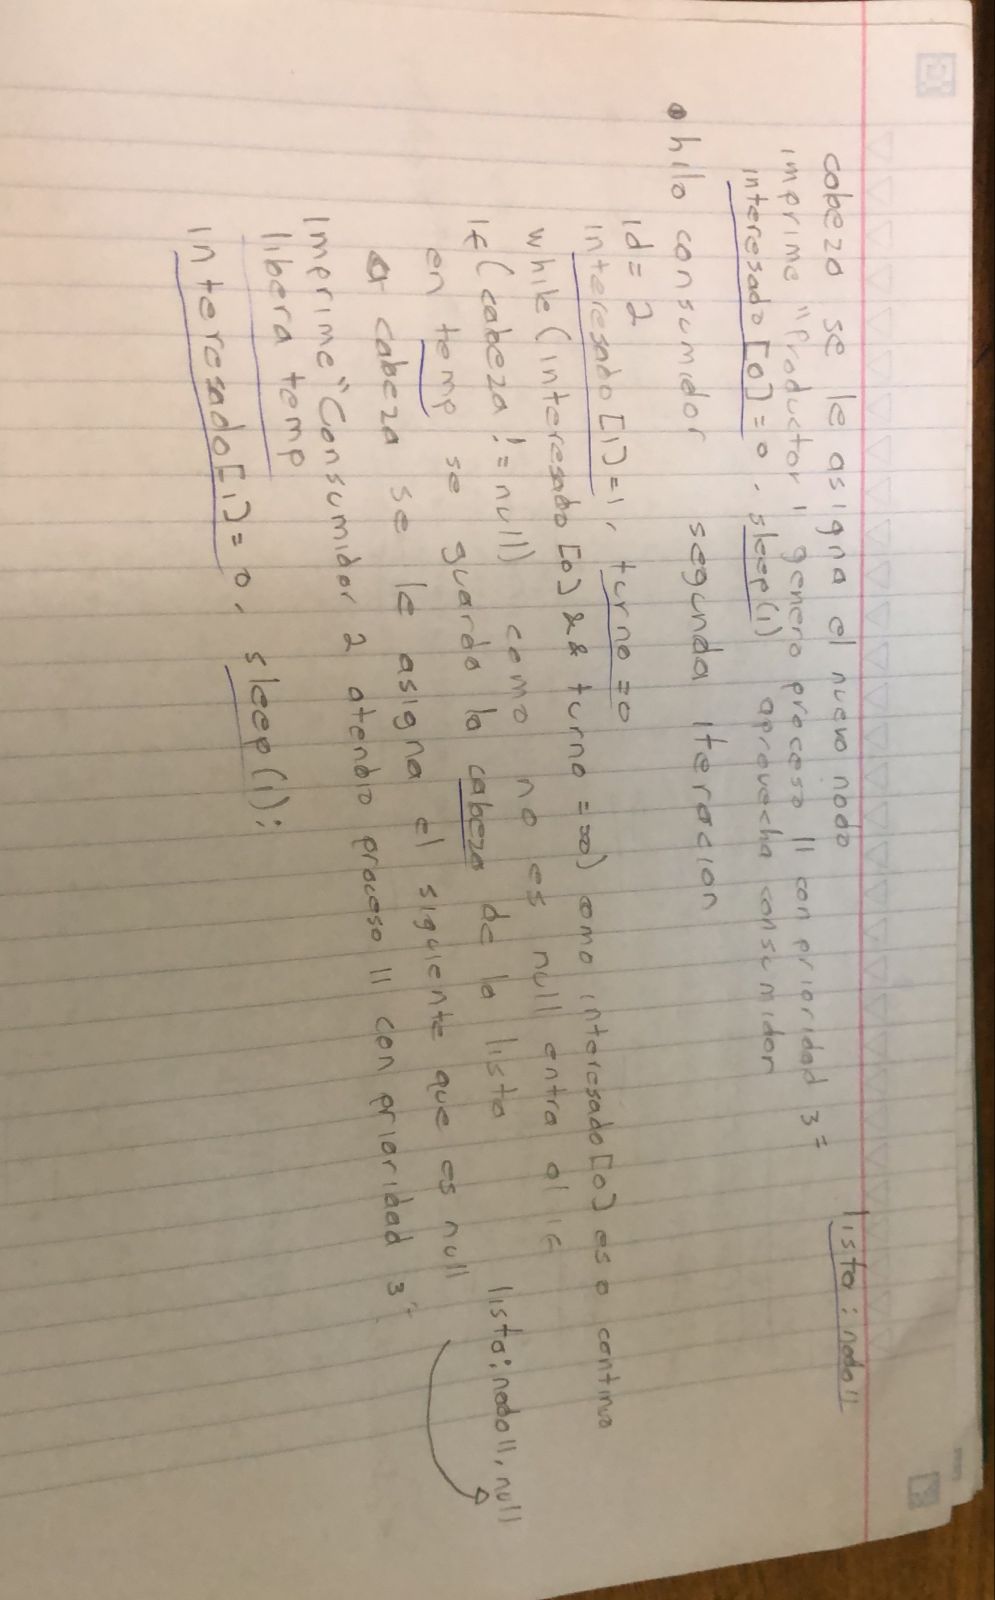 lista: nodo 11
cabeza se le asigna el nuevo nodo
imprime "Productor 1 genero proceso 11 con prioridad 3"
interesado[0]=0, sleep(1) aprovecha consumidor
• hilo consumidor segunda iteracion
id=2
interesado[1]=1, turno=0
while(interesado[0]&& turno==0) como interesado[0] es 0 continua
if(cabeza != null) como no es null entra al if
en temp se guarda la cabeza de la lista lista: nodo11, null
a cabeza se le asigna el siguiente que es null
imprime "Consumidor 2 atendio proceso 11 con prioridad 3"
libera temp
interesado[1]=0, sleep(1);